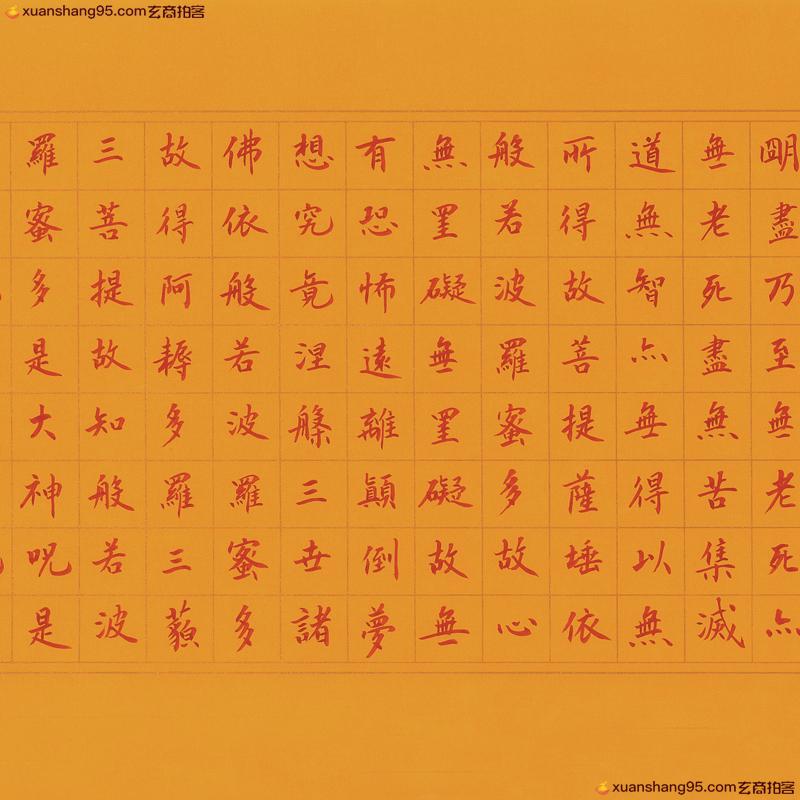 xuanshang95.com玄商拍客
朙盡乃至無老死亦
無老死盡無苦集滅
道無智亦無得以無
所得故菩提薩埵依
般若波羅蜜多故心
無罣礙無罣礙故無
有恐怖遠離顛倒夢
想究竟涅槃三世諸
佛依般若波羅蜜多
故得阿耨多羅三藐
三菩提故知般若波
羅蜜多是大神呪是
xuanshang95.com玄商拍客